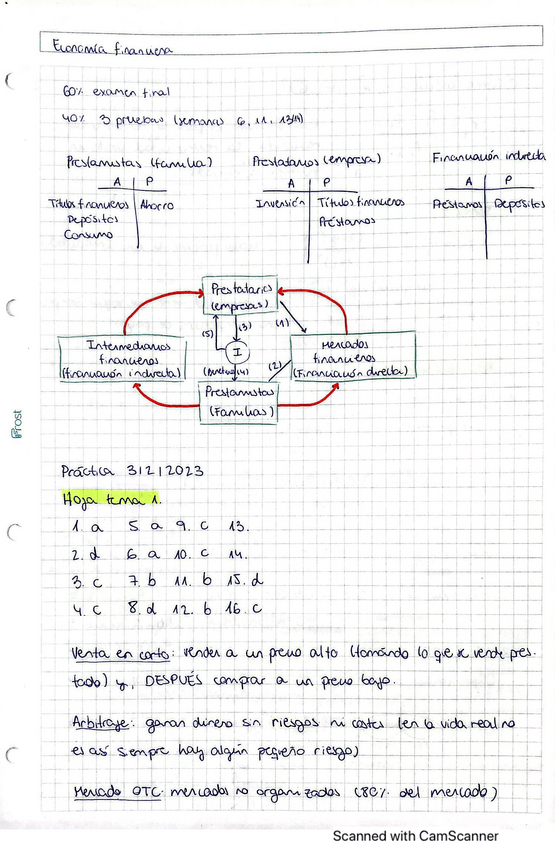 Economía financiera
60% examen final
40% 3 pruebas (semanas 6, 11, 13/14)
Prestamistas (familia)
A | P
Títulos financieros | Ahorro
Depósitos
Consumo
Prestatarios (empresa)
A | P
Inversión | Títulos financieros
Préstamos
Financiación indirecta
A | P
Préstamos | Depósitos
Prestatarios
(empresas)
(5)
(3)
(1)
Intermediarios
financieros
(financiación indirecta)
I
Mercados
financieros
(Financiación directa)
(4)
(2)
Prestamistas
(Familias)
Frost
Práctica 3/2/2023
Hoja tema 1.
1. a 5. a 9. c 13.
2. d 6. a 10. c 14.
3. c 7. b 11. b 15. d
4. c 8. d 12. b 16. c
Venta en corto: vender a un precio alto (tomando lo que se vende pres.
tado) y, DESPUÉS comprar a un precio bajo.
Arbitraje: ganan dinero sin riesgos ni costes (en la vida real no
es así siempre hay algún pequeño riesgo)
Mercado OTC: mercados no organizados (80% del mercado)
Scanned with CamScanner